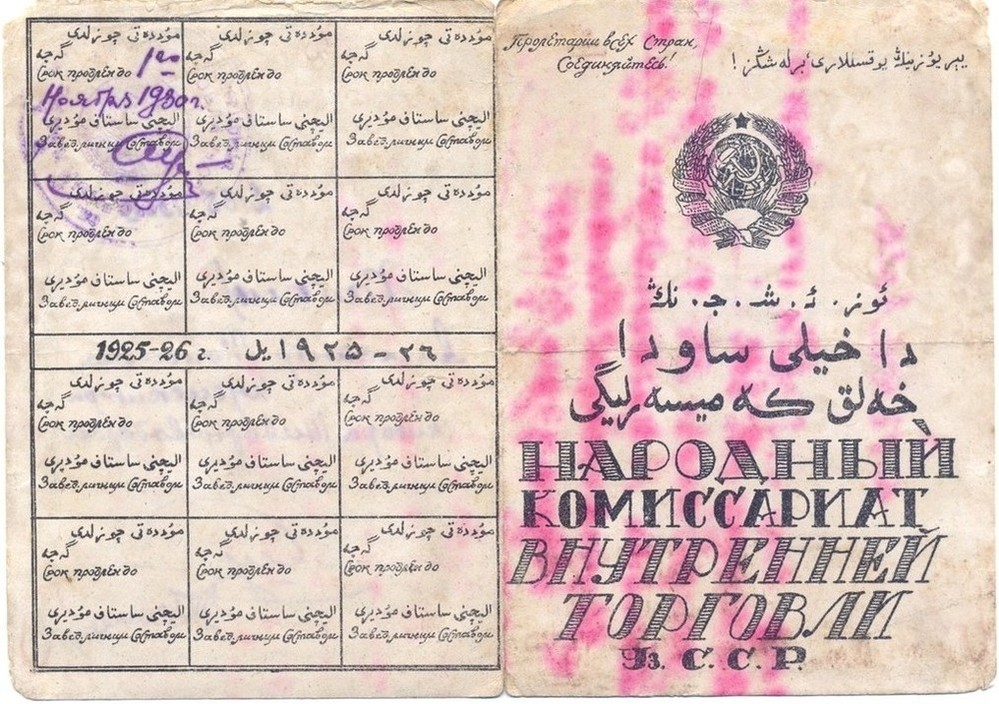 مۇددەتى چوزلدى
گەچە
Срок продлен до 1го
Ноября 1930 г.
اليچنى ساستاف مۇديرى
Завед. личным Составом
مۇددەتى چوزلدى
گەچە
Срок продлен до
اليچنى ساستاف مۇديرى
Завед. личным Составом
مۇددەتى چوزلدى
گەچە
Срок продлен до
اليچنى ساستاف مۇديرى
Завед. личным Составом
مۇددەتى چوزلدى
گەچە
Срок продлен до
اليچنى ساستاف مۇديرى
Завед. личным Составом
مۇددەتى چوزلدى
گەچە
Срок продлен до
اليچنى ساستاف مۇديرى
Завед. личным Составом
مۇددەتى چوزلدى
گەچە
Срок продлен до
اليچنى ساستاف مۇديرى
Завед. личным Составом
1925-26 г. ١٩٢٥-٢٦ يل
مۇددەتى چوزلدى
گەچە
Срок продлен до
اليچنى ساستاف مۇديرى
Завед. личным Составом
مۇددەتى چوزلدى
گەچە
Срок продлен до
اليچنى ساستاف مۇديرى
Завед. личным Составом
مۇددەتى چوزلدى
گەچە
Срок продлен до
اليچنى ساستاف مۇديرى
Завед. личным Составом
مۇددەتى چوزلدى
گەچە
Срок продлен до
اليچنى ساستاف مۇديرى
Завед. личным Составом
مۇددەتى چوزلدى
گەچە
Срок продлен до
اليچنى ساستاف مۇديرى
Завед. личным Составом
مۇددەتى چوزلدى
گەچە
Срок продлен до
اليچنى ساستاف مۇديرى
Завед. личным Составом
Пролетарии всех Стран,
Соединяйтесь!
يېر يۇزىنىڭ يوقسللارى بىرلەشڭز!
ئوز. ئ. ش. ج. نىڭ
داخيلى ساودا
خەلق كەميسەرليگى
НАРОДНЫЙ
КОМИССАРИАТ
ВНУТРЕННЕЙ
ТОРГОВЛИ
Уз. С. С. Р.